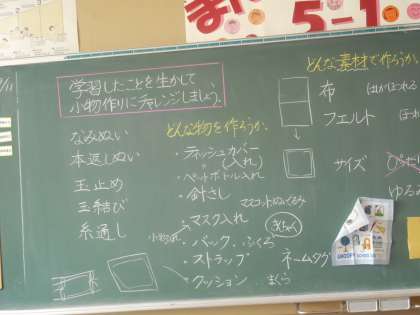 5-1
学習したことを生かして、
小物作りにチャレンジしましょう。
なみぬい
本返しぬい
玉止め
玉結び
糸通し
どんな物を作ろうか。
・ティッシュカバー
(入れ)
・ペットボトル入れ
・針さし
マスコットぬいぐるみ
・マスク入れ
きんちゃく
小物入れ
・バック、ふくろ
・ストラップ
ネームタグ
・クッション
まくら
どんな素材で作ろうか。
布
フェルト
サイズ